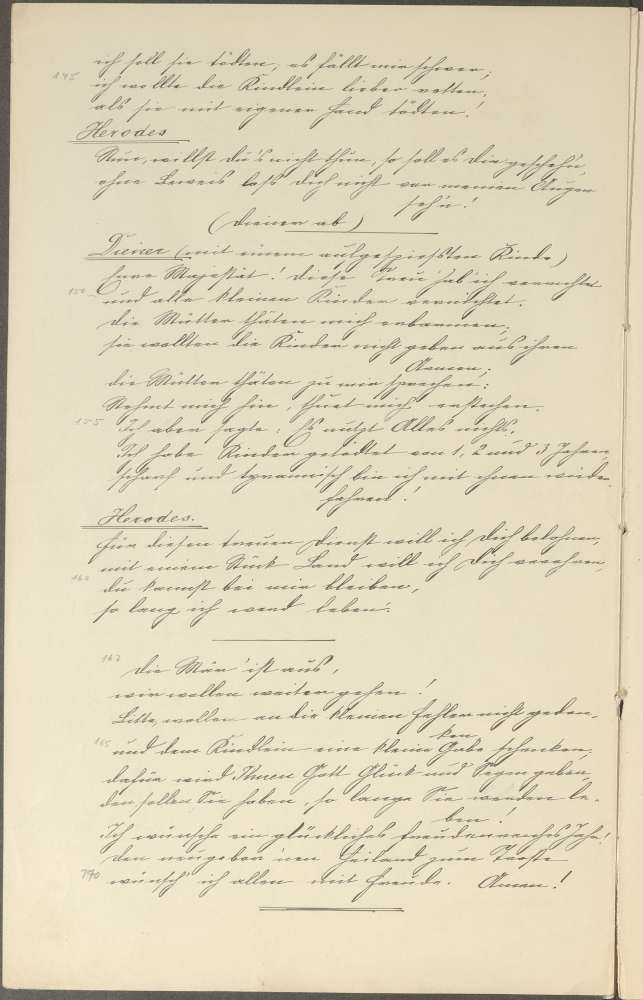 ich soll sie tödten, es fällt mir schwer;
145
ich wollte die Kindlein lieber retten,
als sie mit eigener Hand tödten!
Herodes
Nun, willst du's nicht thun, so soll es Dir geschehn,
ohne Beweis lass' Dich nicht vor meinen Augen
seh'n!
(Diener ab)
Diener (mit einem aufgespiessten Kinde)
Eure Majestät! diese Treu' hab' ich verrichtet
150
und alle kleinen Kinder vernichtet.
die Mütter thäten mich erbarmen,
sie wollten die Kinder nicht geben aus ihren
Armen;
die Mütter thäten zu mir sprechen:
Nehmt mich hin, thuet mich erstechen.
155
Ich aber sagte: Es nutzt Alles nichts.
Ich habe Kinder getödtet von 1, 2 und 3 Jahren,
scharf und tyrannisch bin ich mit ihnen wieder
fahren!
Herodes.
Für diesen treuen Dienst will ich Dich belohnen,
mit einem Stück Land will ich Dich verehren,
160
du kannst bei mir bleiben,
so lang ich werd leben.
162
Die Mär' ist aus,
wir wollen weiter gehen!
Bitte, wollen an die kleinen Fehler nicht geden-
ken
165
und dem Kindlein eine kleine Gabe schenken,
dafür wird Ihnen Gott Glück und Segen geben,
den sollen Sie haben, so lange Sie werden le-
ben!
Ich wünsche ein glückliches freudenreiches Jahr!
den neugebor'nen Heiland zum Troste
170
wünsch' ich allen mit Freude. Amen!